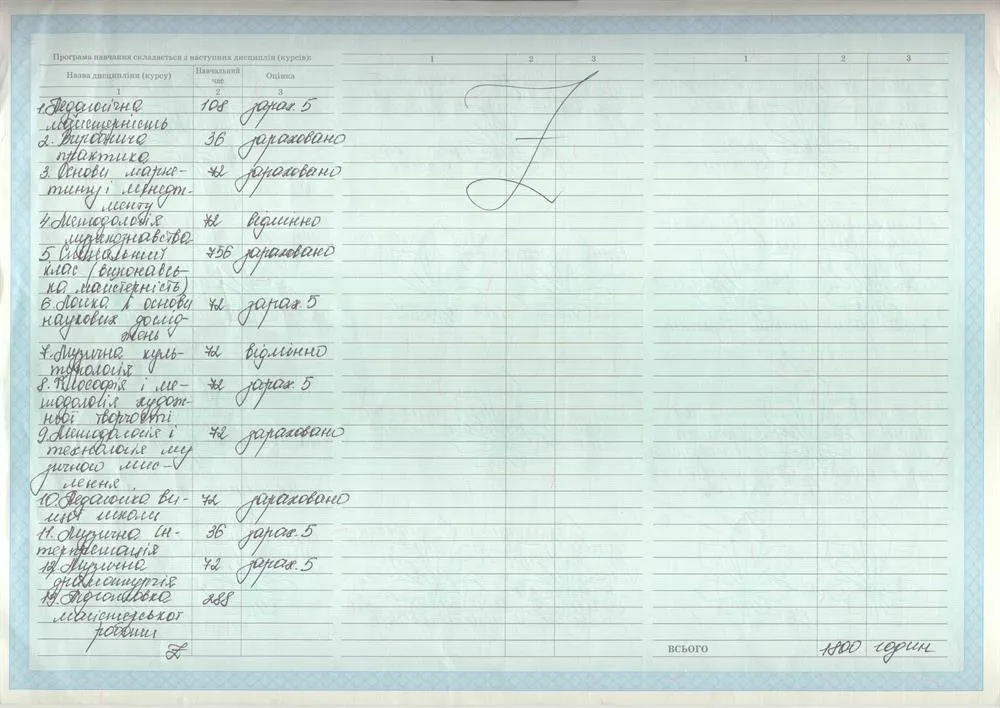 Програма навчання складається з наступних дисциплін (курсів):
Назва дисципліни (курсу) Навчальний час Оцінка
1 2 3
1. Педагогічна 108 зарах. 5
майстерність
2. Виробнича 36 зараховано
практика
3. Основи марке- 72 зараховано
тингу і менедж-
менту
4. Методологія 72 відмінно
музикознавства
5 Спеціальний 756 зараховано
клас (виконавсь-
ка майстерність)
6. Логіка і основи 72 зарах. 5
наукових дослід
жень
7. Музична куль- 72 відмінно
турологія
8. Філософія і ме- 72 зарах. 5
тодологія худож-
ньої творчості
9. Методологія і 72 зараховано
технологія му
зичного мис-
лення
10. Педагогіка ви- 72 зараховано
щої школи
11. Музична ін- 36 зарах. 5
терпретація
12. Музична 72 зарах. 5
драматургія
13. Підготовка 288
магістерської
роботи
Z
1 2 3
Z
1 2 3
ВСЬОГО 1800 годин